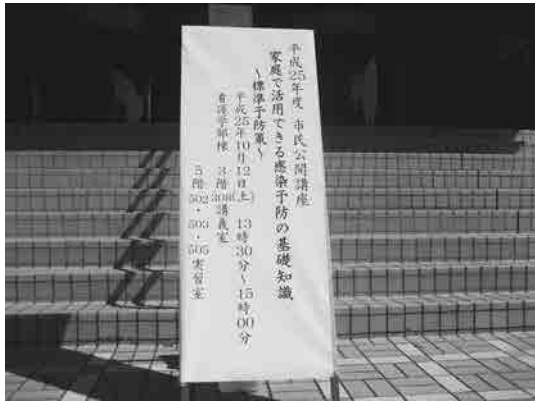 平成25年度 市民公開講座
家庭で活用できる感染予防の基礎知識
～標準予防策～
平成25年10月12日(土) 13時30分～15時00分
看護学部棟 3階308講義室
5階502・503・505実習室